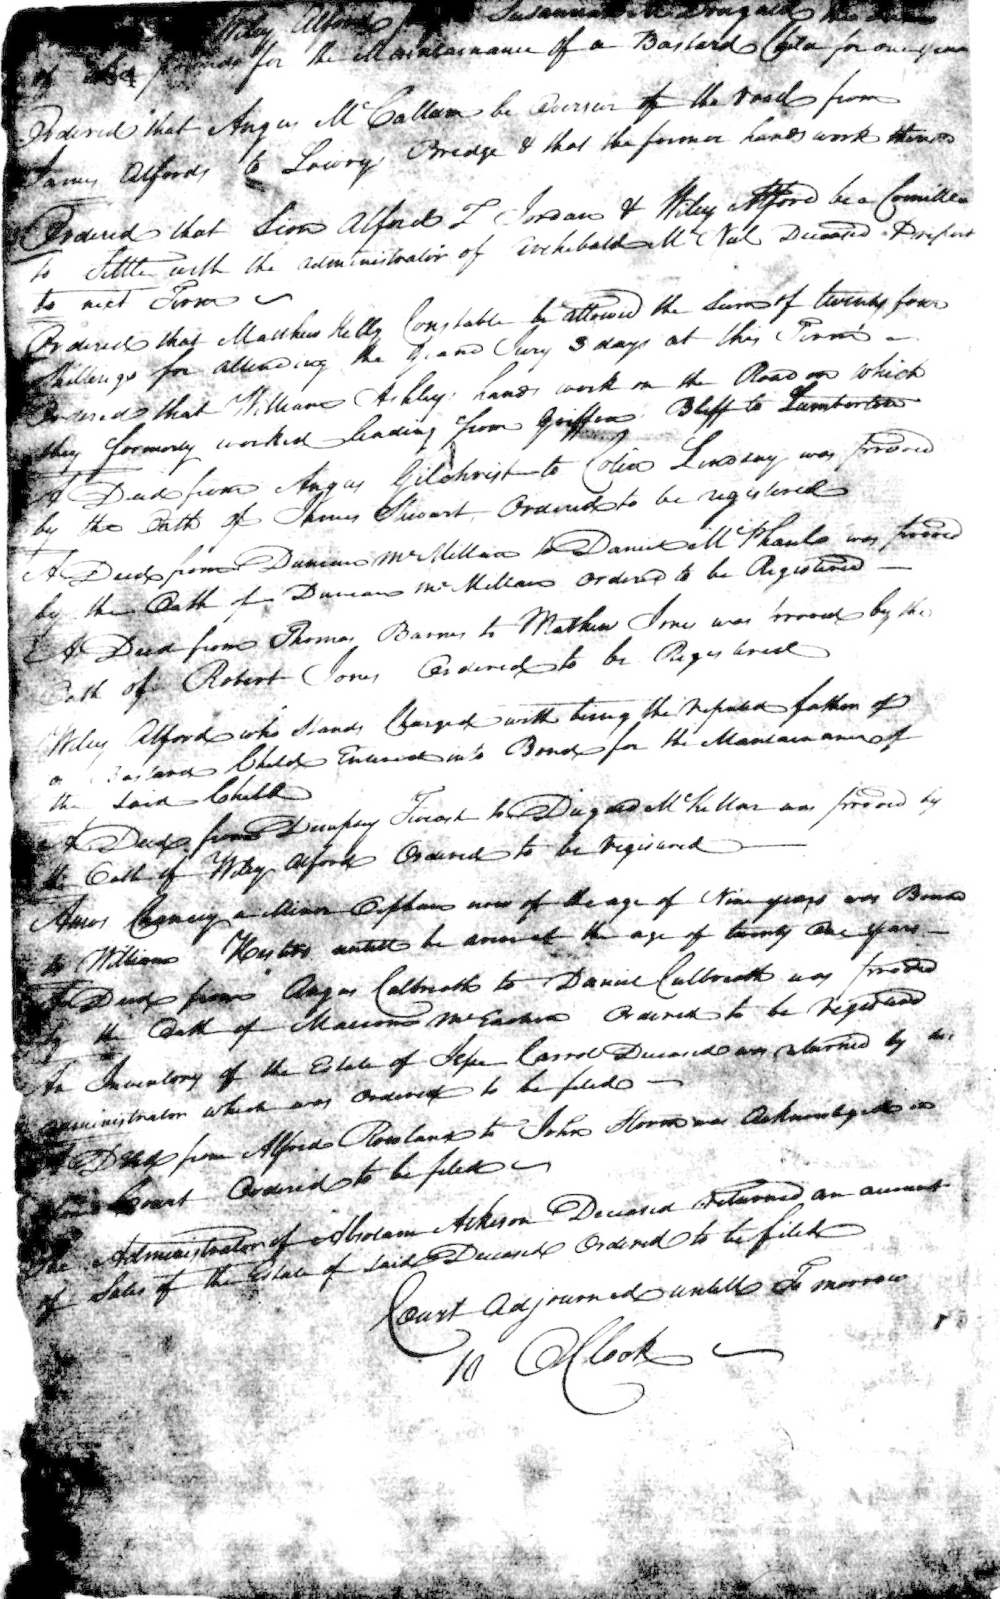 Wiley Alford Susannah McDougald the sum
of pounds for the Maintainance of a Bastard Child for one year
Ordered that Angus McCallum be overseer of the road from
James Alfords to Lowry Bredge & that the former hands work thereon
Ordered that Sion Alford T Jordan & Wiley Alford be a Comittee
to Settle with the administrator of Archebald McNeil Deceased & report
to next Term
Ordered that Matthew Kelly Constable be allowed the Sum of twenty four
Shillings for attending the Grand Jury 3 days at this Term
Ordered that William Ashleys hands work on the Road on which
they formerly worked leading from Griffin Bluff to Lumberton
A Deed from Angus Gilchrist to Colin Lindsay was prooved
by the Oath of James Stewart Ordered to be registered
A Deed from Duncan McMillan to Daniel McPhaul was prooved
by the Oath of Duncan McMillan Ordered to be Registered
A Deed from Thomas Barnes to Mathew Jones was prooved by the
Oath of Robert Jones Ordered to be Registered
Wiley Alford who stands Charged with being the reputed father of
a Bastard Child Entered into Bond for the Maintainance of
the said Child
A Deed from Dempsey to Dugald McKellar was prooved by
the Oath of Wiley Alford Ordered to be registered
Amos Chancey a Minor Orphan now of the age of Nine years was Bound
to William Hesters untill he arives at the age of twenty one years
A Deed from Angus Calbreath to Daniel Culbreath was prooved
by the Oath of McEachin Ordered to be registered
An Inventory of the Estate of Jesse Carrol Deceased was returned by the
administrator which was ordered to be filed
A Deed from Alfred Rowland to John was Acknowledged in
open Court Ordered to be filed
The Administrator of Absolam Ackison Deceased returned an account
of Sales of the Estate of said Deceased Ordered to be filed
Court adjourned untill To morrow
10 OClock